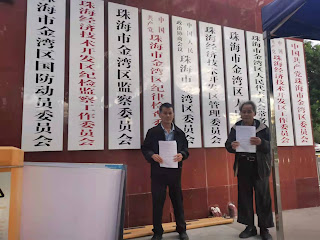 珠海市金湾区国防动员委员会
珠海经济技术开发区纪检监察工作委员会
珠海市金湾区监察委员会
中国共产党
珠海市金湾区纪律检查
珠海市金湾区委员会
珠海经济技术开发区管理委员会
珠海市金湾区人
珠海市金湾区人民代表大会常
珠海经济技术开发区工作委员会
中国共产党
珠海市金湾区委员会